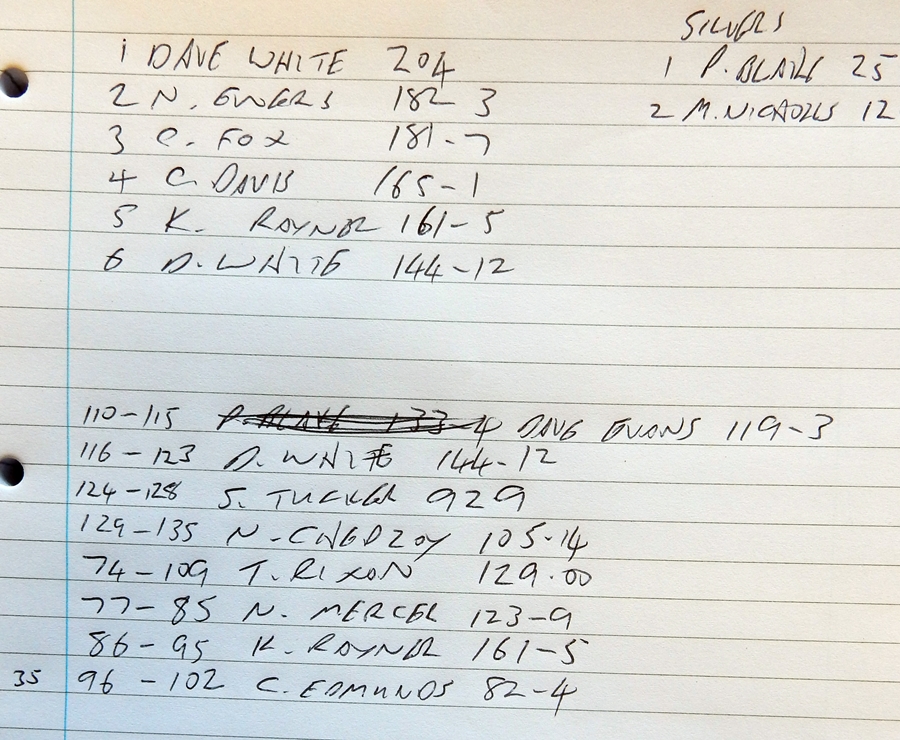 SILVERS
1 DAVE WHITE 204
1 P. BLAKE 25
2 N. EWERS 182-3
2 M. NICHOLLS 12
3 C. FOX 181-7
4 C. DAVIS 165-1
5 K. RAYNER 161-5
6 D. WHITE 144-12
110-115 P. BLAKE 133-4 DAVE EVANS 119-3
116-123 D. WHITE 144-12
124-128 S. TUCKER 929
129-135 N. CHEDZOY 105-14
74-109 T. RIXON 129.00
77-85 N. MERCER 123-9
86-95 K. RAYNER 161-5
35 96-102 C. EDMUNDS 82-4